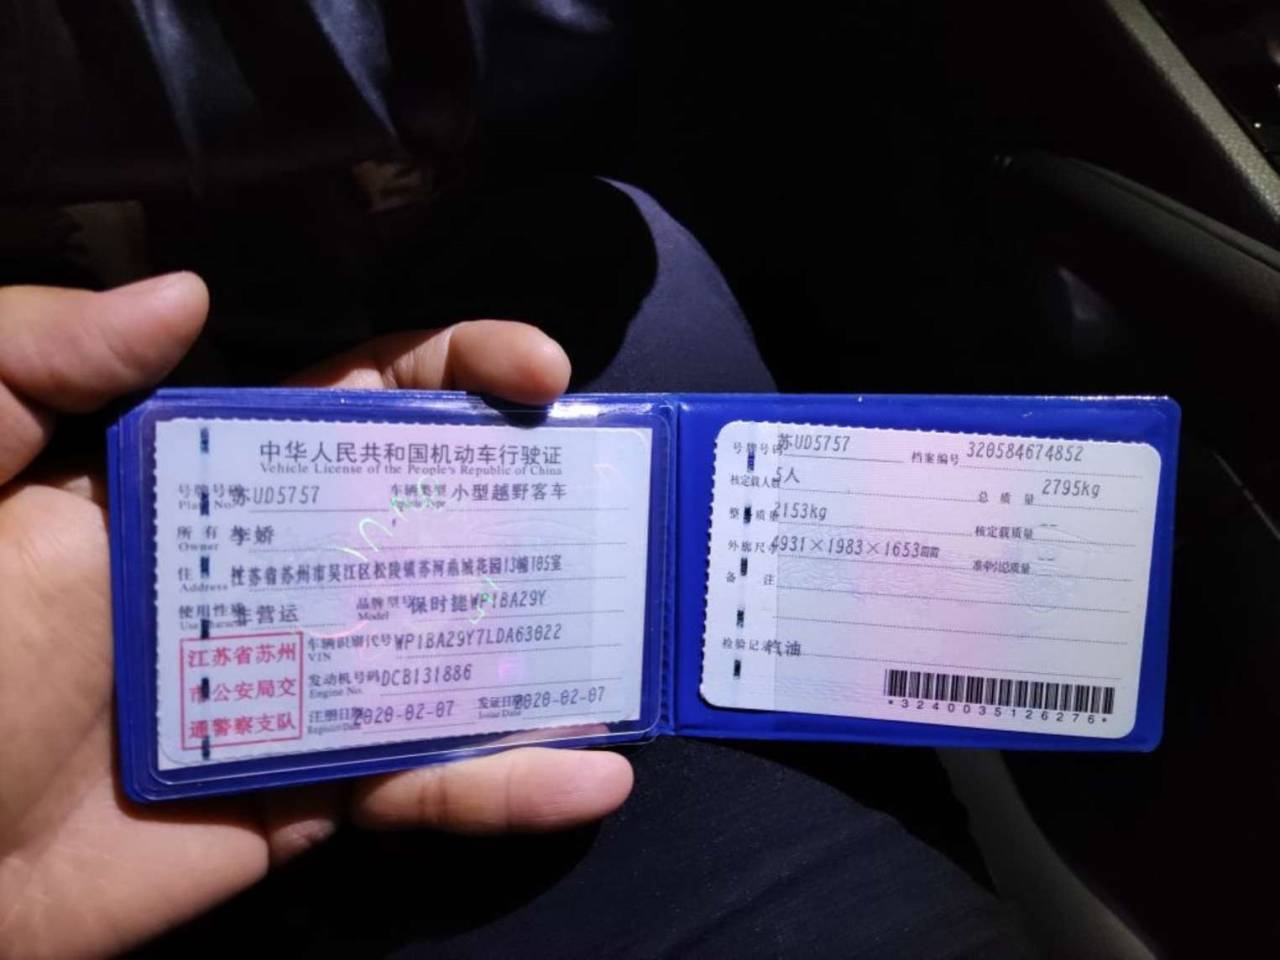 中华人民共和国机动车行驶证
Vehicle License of the People's Republic of China
号牌号码 苏UD5757 车辆类型 小型越野客车
Plate No.
所有 李娇
Owner
住 江苏省苏州市吴江区松陵镇苏河鼎城花园13幢105室
Address
使用性质 非营运 品牌型号 保时捷WP1BA29Y
Use Character Model
江苏省苏州
市公安局交
通警察支队
车辆识别代号 WP1BA29Y7LDA63022
VIN
发动机号码 DCB131886
Engine No.
注册日期 2020-02-07 发证日期 2020-02-07
Register Date Issue Date
号牌号码 苏UD5757 档案编号 320584674852
核定载人数 5人 总质量 2795kg
整备质量 2153kg 核定载质量 --
外廓尺寸 4931×1983×1653mm 准牵引总质量 --
备注
检验记录 汽油
*3240035126276*